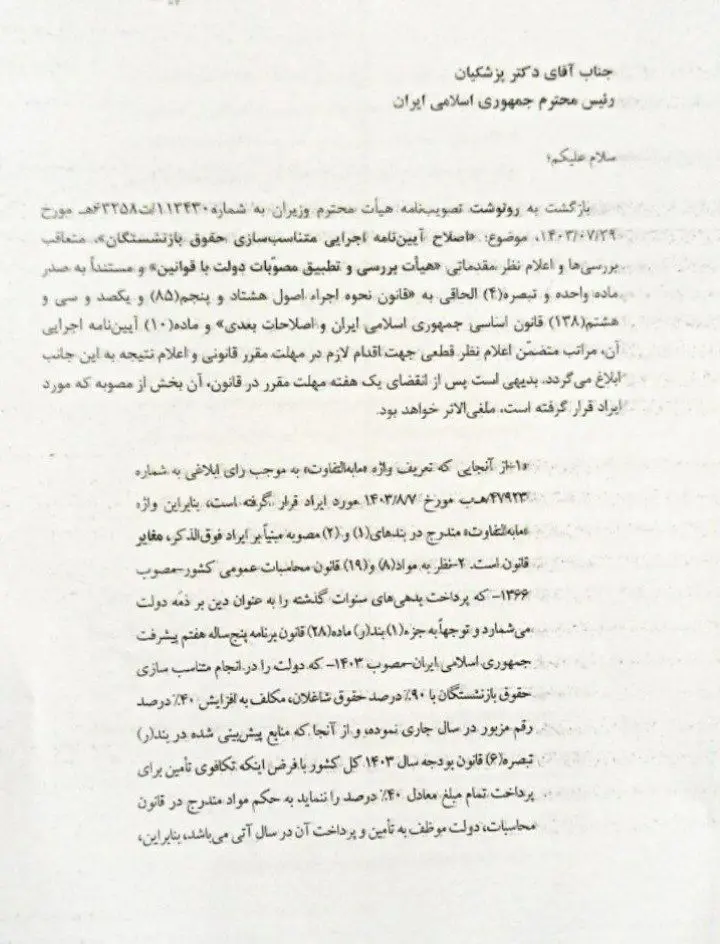 جناب آقای دکتر پزشکیان
رئیس محترم جمهوری اسلامی ایران
سلام علیکم؛
بازگشت به رونوشت تصویب‌نامه هیأت محترم وزیران به شماره۱۱۳۴۳۰/ت۶۳۲۵۸هـ مورخ
۱۴۰۳/۰۷/۲۹، موضوع: «اصلاح آیین‌نامه اجرایی متناسب‌سازی حقوق بازنشستگان»، متعاقب
بررسی‌ها و اعلام نظر مقدماتی «هیأت بررسی و تطبیق مصوّبات دولت با قوانین» و مستنداً به صدر
ماده واحده و تبصره(۴) الحاقی به «قانون نحوه اجراء اصول هشتاد و پنجم(۸۵) و یکصد و سی و
هشتم(۱۳۸) قانون اساسی جمهوری اسلامی ایران و اصلاحات بعدی» و ماده(۱۰) آیین‌نامه اجرایی
آن، مراتب متضمّن اعلام نظر قطعی جهت اقدام لازم در مهلت مقرر قانونی و اعلام نتیجه به این جانب
ابلاغ می‌گردد. بدیهی است پس از انقضای یک هفته مهلت مقرر در قانون، آن بخش از مصوبه که مورد
ایراد قرار گرفته است، ملغی‌الاثر خواهد بود.
«۱-از آنجایی که تعریف واژه «مابه‌التفاوت» به موجب رای ابلاغی به شماره
۴۷۹۲۳/هـ‌ب مورخ ۱۴۰۳/۸/۷ مورد ایراد قرار گرفته است، بنابراین واژه
«مابه‌التفاوت» مندرج در بندهای(۱) و (۲) مصوبه مبنیاً بر ایراد فوق‌الذکر، مغایر
قانون است. ۲-نظر به مواد(۸) و(۱۹) قانون محاسبات عمومی کشور-مصوب
۱۳۶۶- که پرداخت بدهی‌های سنوات گذشته را به عنوان دین بر ذمّه دولت
می‌شمارد و توجهاً به جزء(۱) بند(ر) ماده(۲۸) قانون برنامه پنج‌ساله هفتم پیشرفت
جمهوری اسلامی ایران-مصوب ۱۴۰۳- که دولت را در انجام متناسب سازی
حقوق بازنشستگان با ۹۰٪ درصد حقوق شاغلان، مکلف به افزایش ۴۰٪ درصد
رقم مزبور در سال جاری نموده، و از آنجا که منابع پیش‌بینی شده در بند(ر)
تبصره(۶) قانون بودجه سال ۱۴۰۳ کل کشور با فرض اینکه تکافوی تأمین برای
پرداخت تمام مبلغ معادل ۴۰٪ درصد را ننماید به حکم مواد مندرج در قانون
محاسبات، دولت موظف به تأمین و پرداخت آن در سال آتی می‌باشد، بنابراین،